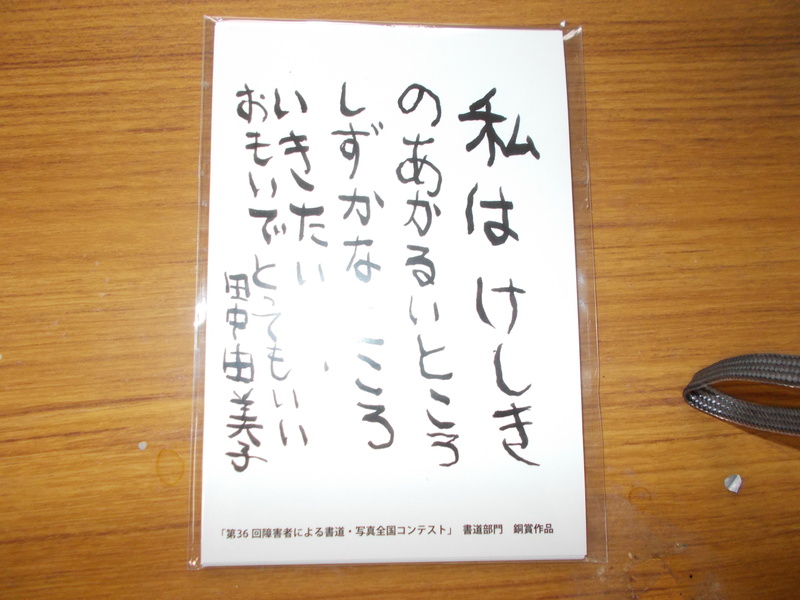 私は けしき
のあかるいところ
しずかな ころ
いきたい
おもいで とってもいい
田中由美子
「第36回障害者による書道・写真全国コンテスト」 書道部門 銅賞作品